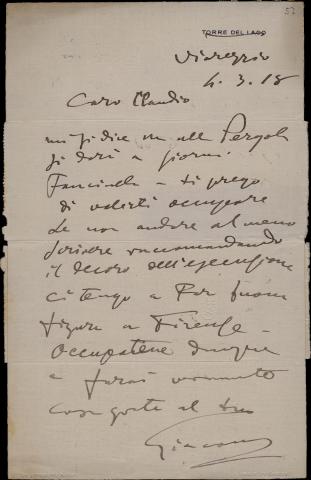 52
TORRE DEL LAGO
Viareggio
4.3.18
Caro Claudio
mi si dice che alla Pergola
si darà a giorni
Fanciulla - ti prego
di volerti occupare
se non andare al meno
scrivere raccomandando
il decoro dell'esecuzione
ci tengo a far buona
figura a Firenze -
Occupatene dunque
e farai veramente
cosa grata al tuo
Giacomo